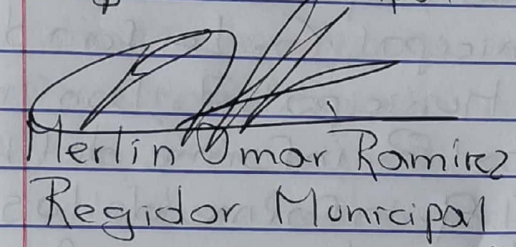 Merlin Omar Ramirez
Regidor Municipal